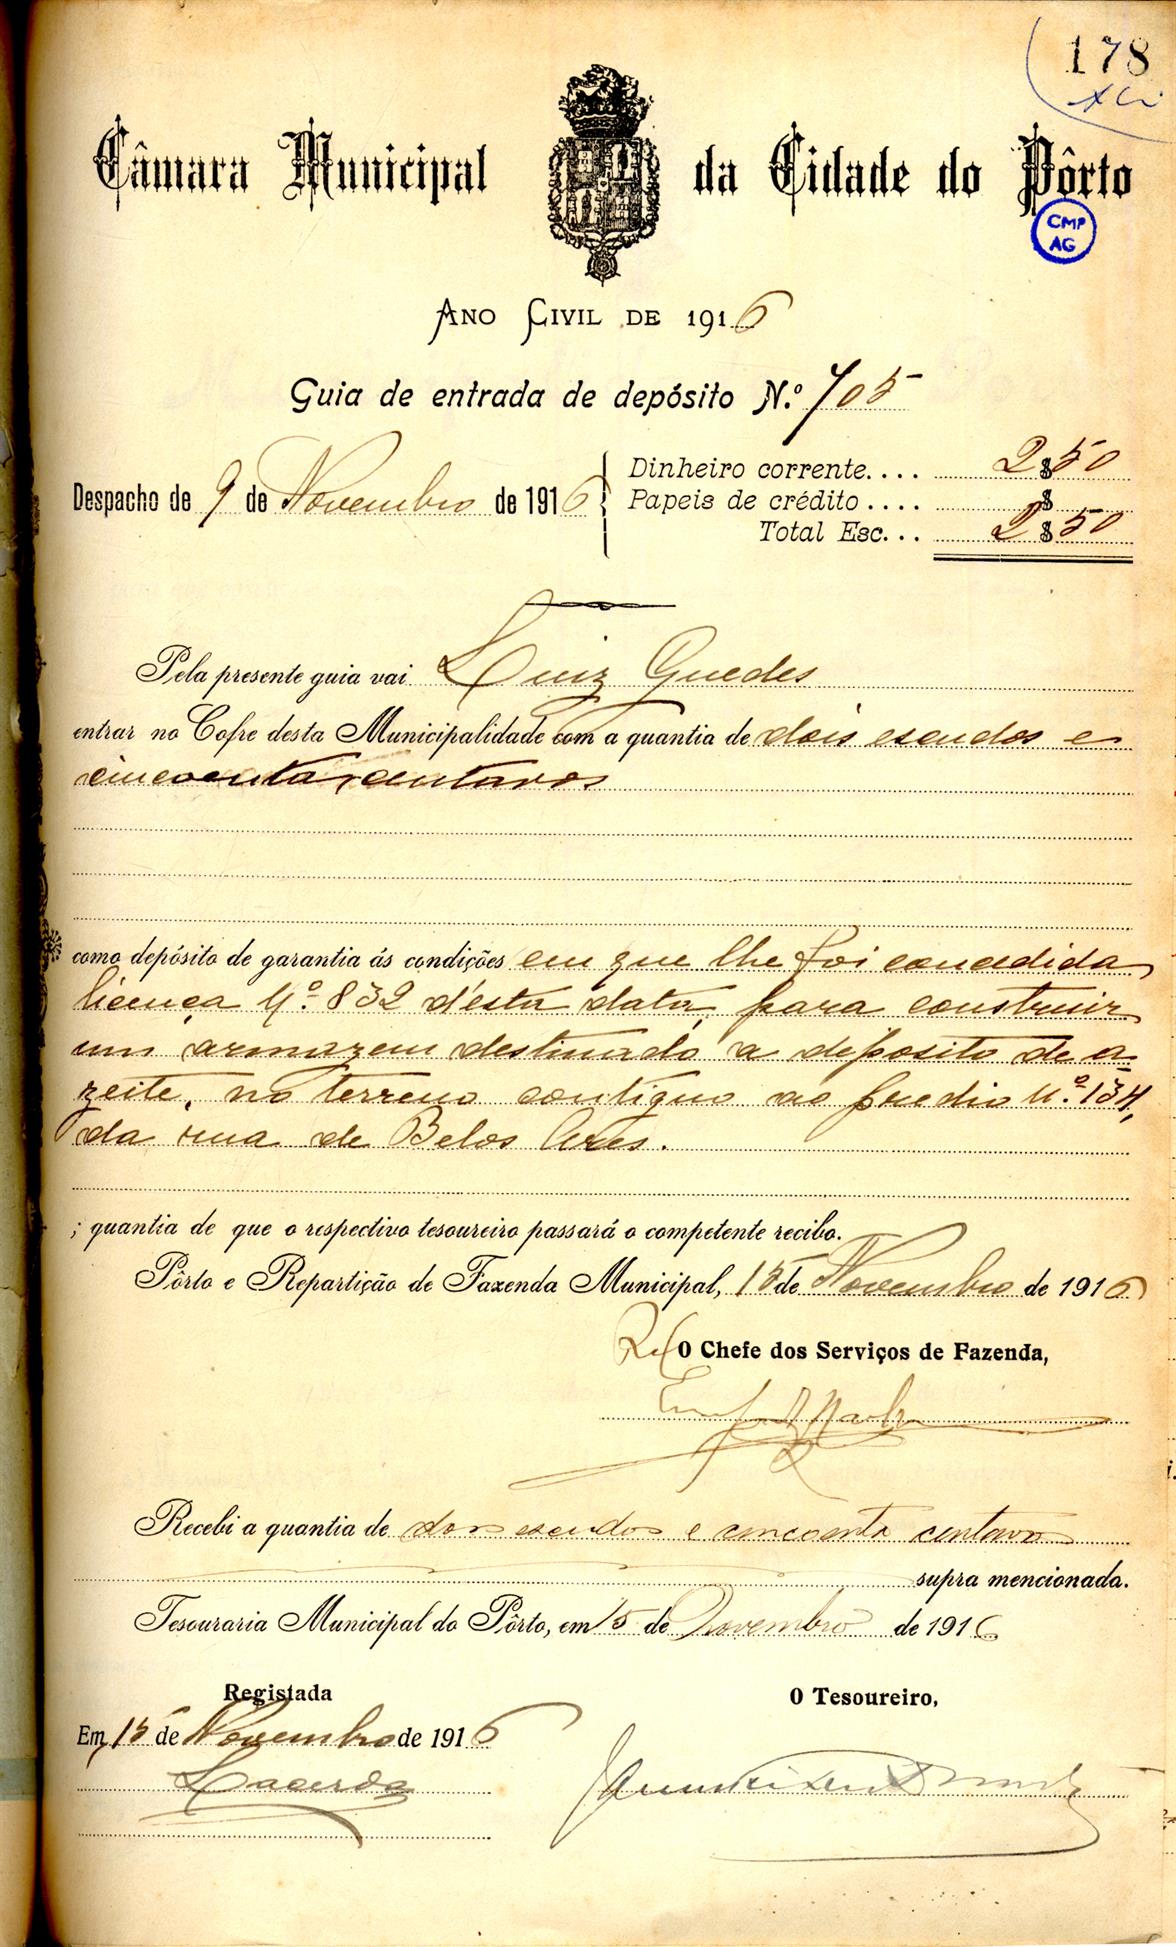 178
Câmara Municipal da Cidade do Pôrto
CMP
AG
ANO CIVIL DE 1916
Guia de entrada de depósito N.º 705
Despacho de 9 de Novembro de 1916
Dinheiro corrente.... 2$50
Papeis de crédito.... $
Total Esc... 2$50
Pela presente guia vai Luiz Guedes
entrar no Cofre desta Municipalidade com a quantia de dois escudos e
cincoenta centavos
como depósito de garantia ás condições em que lhe foi concedida
licença N.º 832 d'esta data, para construir
um armazem destinado a deposito de a
zeite, no terreno contiguo ao predio N.º 134,
da rua de Belos Ares.
; quantia de que o respectivo tesoureiro passará o competente recibo.
Pôrto e Repartição de Fazenda Municipal, 15 de Novembro de 1916
O Chefe dos Serviços de Fazenda,
Recebi a quantia de dois escudos e cincoenta centavos
supra mencionada.
Tesouraria Municipal do Pôrto, em 15 de Novembro de 1916
Registada
O Tesoureiro,
Em 15 de Novembro de 1916
Lacerda